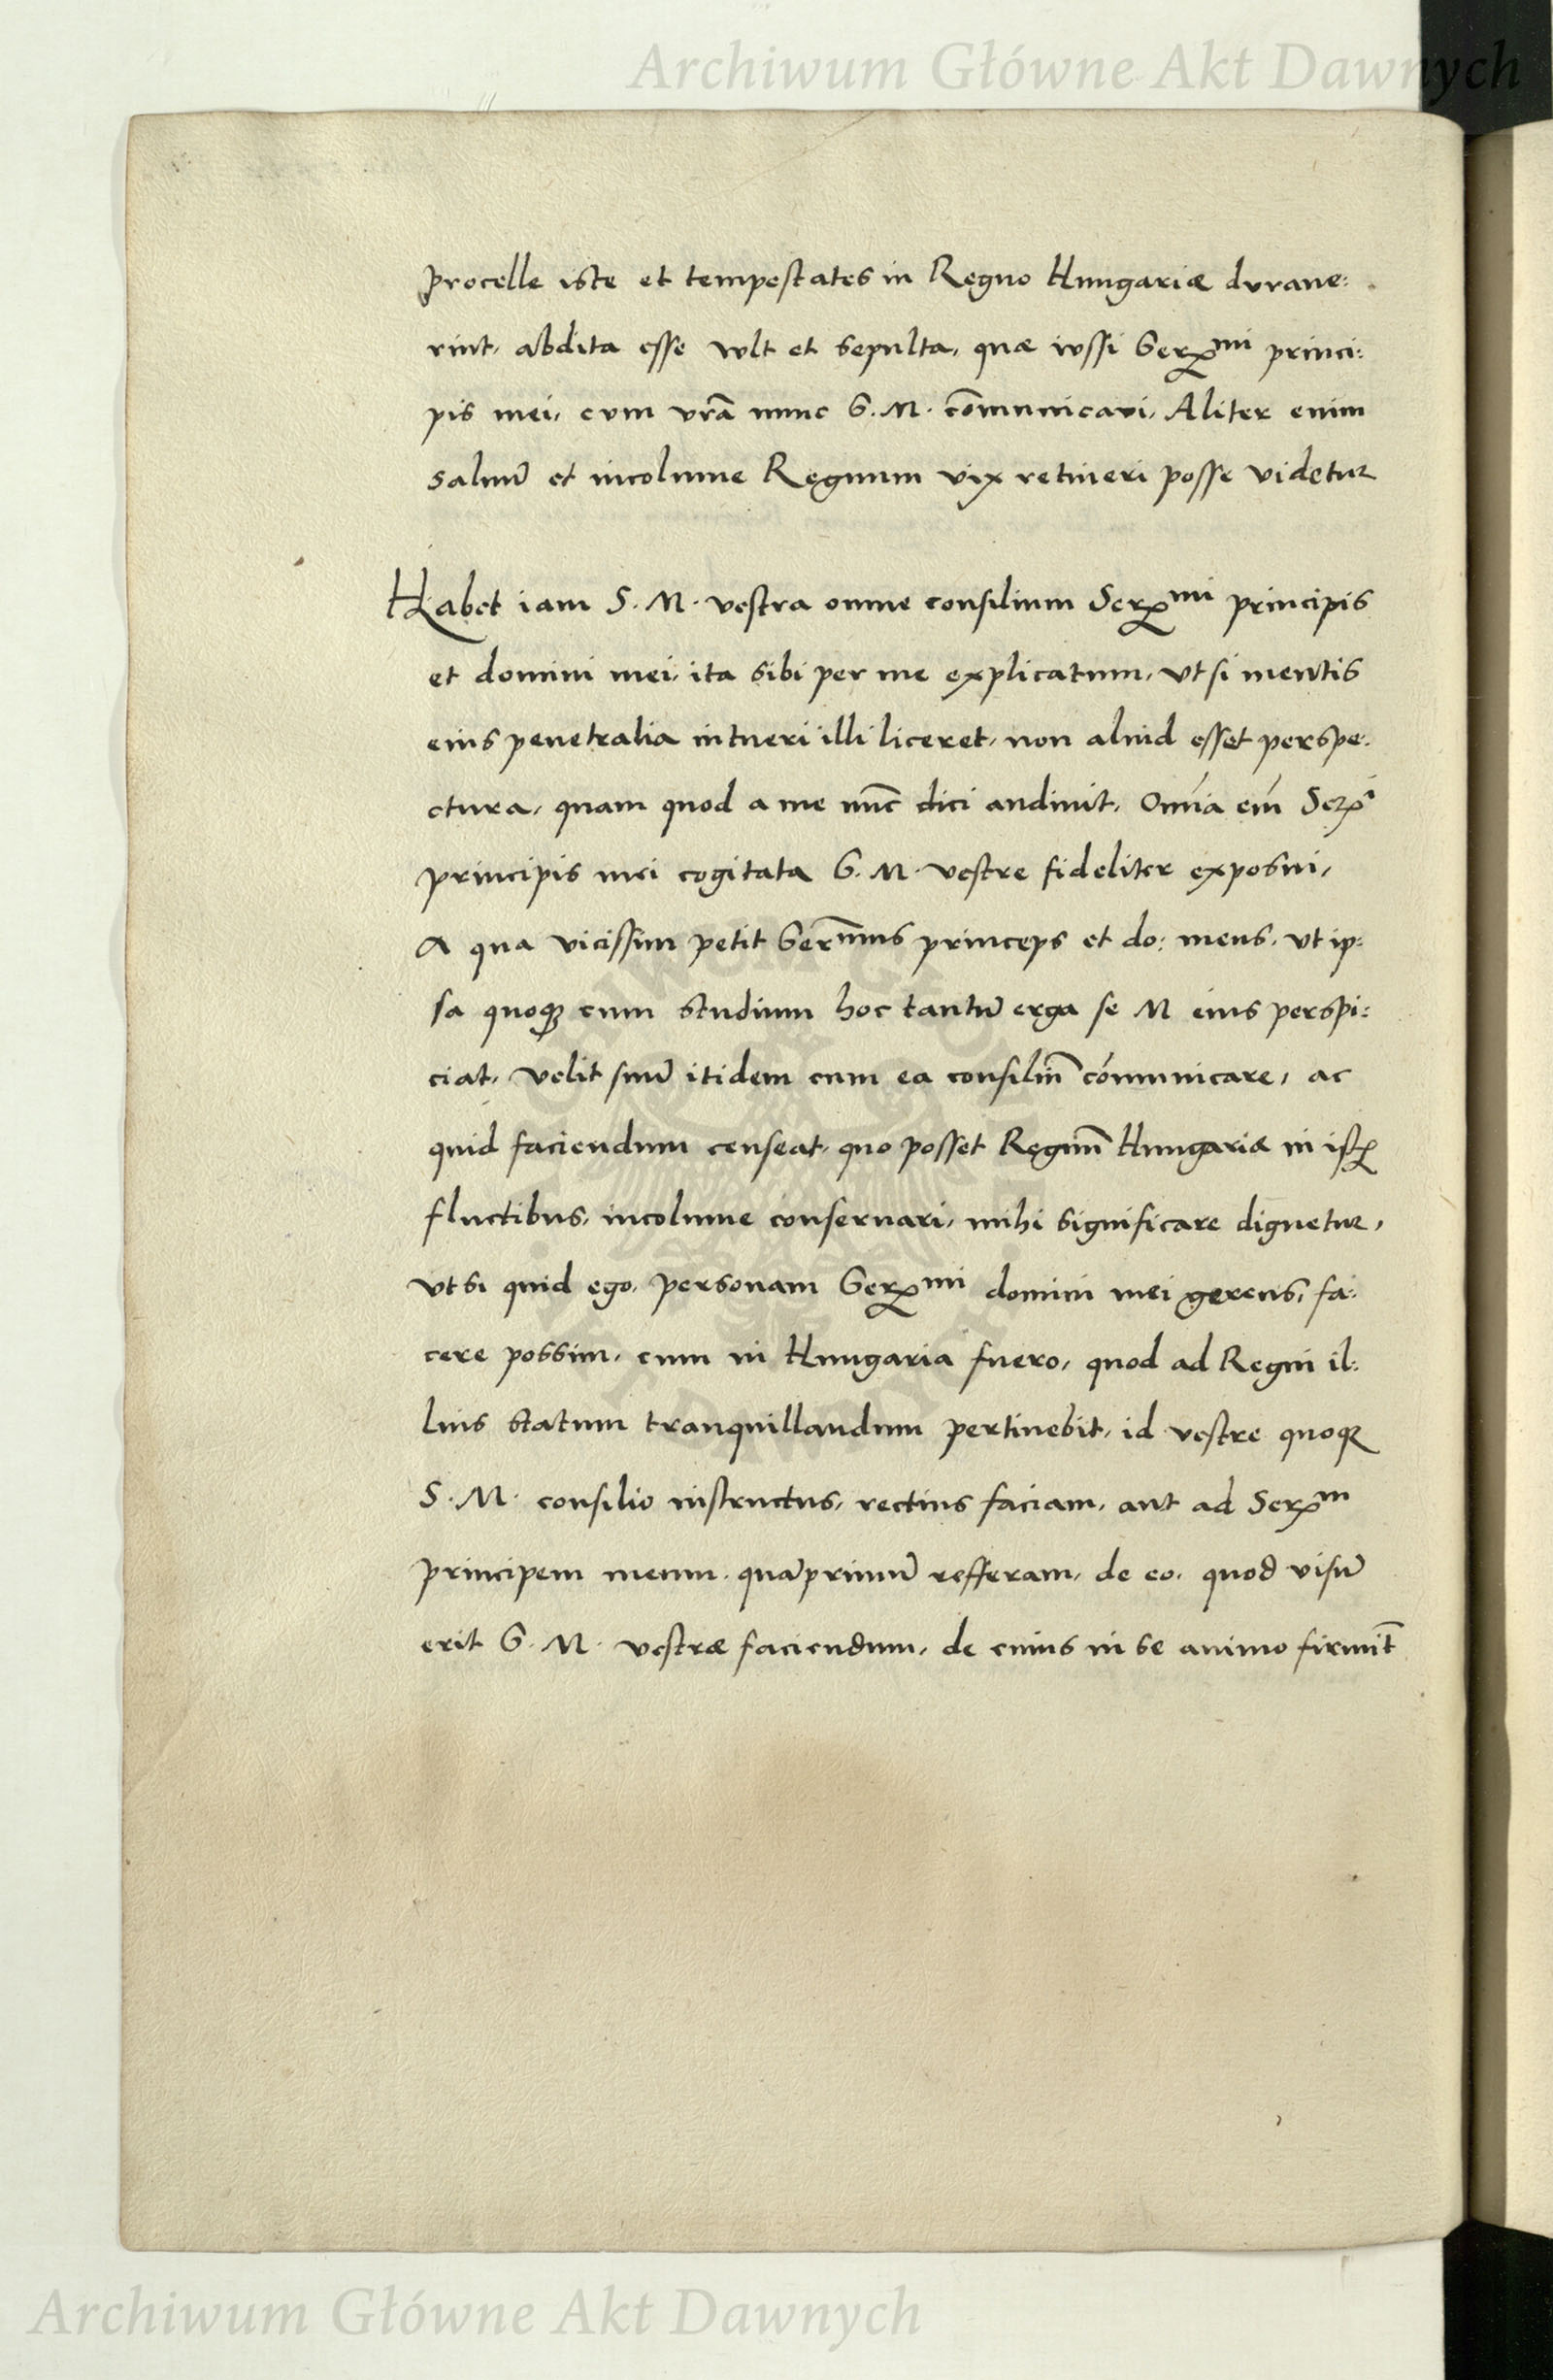 Archiwum Główne Akt Dawnych
procelle iste et tempestates in Regno Hungariæ durave:
rint, abdita esse wlt et sepulta, quæ iussi Serᵐⁱ princi:
pis mei, cum vrã nunc S. M. cõmunicavi, Aliter enim
salvũ et incolume Regnum vix retineri posse videtur
Habet iam S. M. vestra omne consilium Serᵐⁱ principis
et domini mei, ita sibi per me explicatum, ut si mentis
eius penetralia intueri illi liceret, non aliud esset perspe:
ctura, quam quod a me nũc dici audivit, Omĩa eĩ Serⁱ
principis mei cogitata S. M. vestre fideliter exposui,
A qua vicissim petit Serm̃us princeps et do: meus, ut ip:
sa quoqꝫ cum studium hoc tantũ erga se M eius perspi:
ciat, velit suũ itidem cum ea consiliũ cõmunicare, ac
quid faciendum censeat, quo posset Regnũ Hungariæ in istꝭ
fluctibus, incolume conservari, mihi significare dignetur,
ut si quid ego, personam Serᵐⁱ domini mei gerens, fa:
cere possim, cum in Hungaria fuero, quod ad Regni il:
lius statum tranquillandum pertinebit, id vestre quoqꝫ
S. M. consilio instructus, rectius faciam, aut ad Serᵐ
principem meum, quãprimũ refferam, de eo, quod visũ
erit S. M. vestræ faciendum, de cuius in se animo firmit̃
Archiwum Główne Akt Dawnych